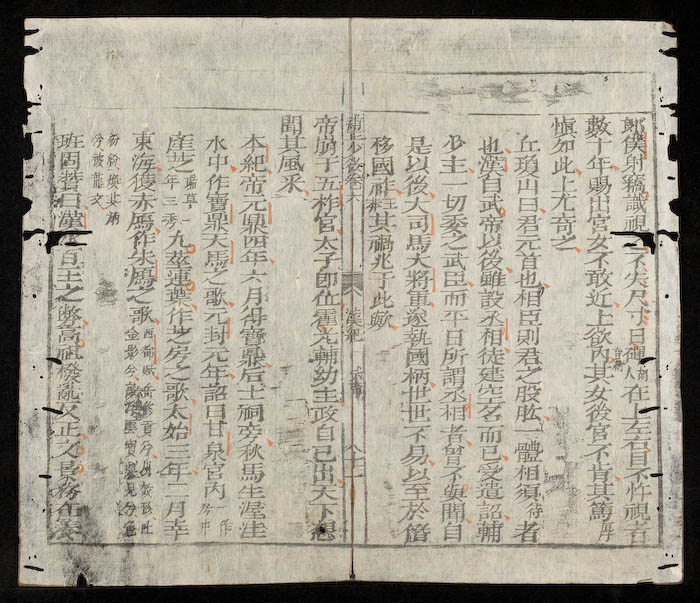 郎僕射竊識視之不失尺寸日磾胡人在上左右目不忤視者
數十年賜出宮女不敢近上欲內其女後宮不肯其篤厚
愼如此上尤奇之
丘瓊山曰君元首也相臣則君之股肱一體相須待者
也漢自武帝以後雖設丞相徒建空名而已受遺詔輔
少主一切委之武臣而平日所謂丞相者曾不與聞自
是以後大司馬大將軍遂執國柄世世不易以至於僭
移國祚王莽其禍兆于此歟
卷六 漢紀 武帝 八十一
帝崩于五柞宮太子卽位霍光輔幼主政自己出天下想
聞其風采
本紀帝元鼎四年六月得寶鼎后土祠旁秋馬生渥洼
水中作寶鼎天馬之歌元封元年詔曰甘泉宮內一作房中
産芝瑞草一年三秀九莖連葉作芝房之歌太始三年二月幸
東海獲赤鴈作朱鴈之歌西都賦嶽修貢兮川效珍吐金景兮歊浮雲寶鼎見兮色
紛紜煥其炳兮被龍文
班固贊曰漢承百王之弊高祖撥亂反正文景務在養